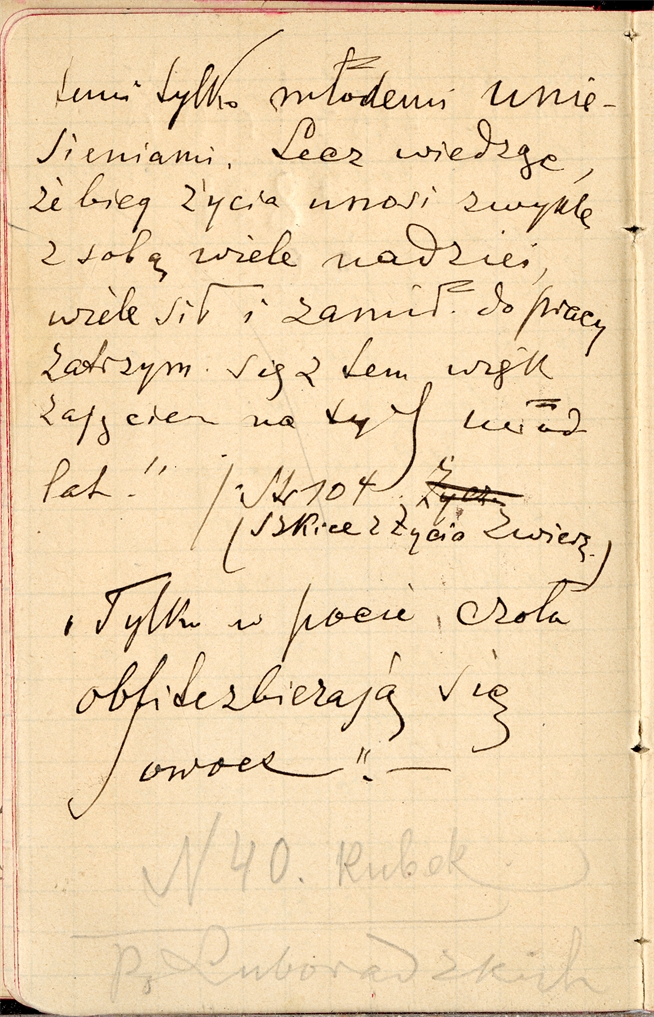 temi tylko młodemi unie-
sieniami. Lecz wiedząc,
że bieg życia unosi zwykle
z sobą wiele nadziei,
wiele sił i zamił. do pracy
zatrzym. się z tem więk
zajęciem na tych
lat."
(Str 104
(Szkice z życia zwierz.)
„Tylko w pocie czoła
obfite zbierają się
owoce". —
N 40. Kubek
Luboradzkich